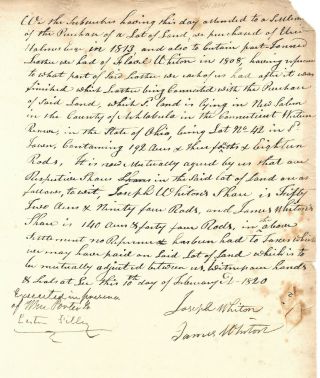 We the Subscribers having this day attended to a Settlement
of the Purchase of a Lot of Land, we purchased of Uriel
Holmes Esqr in 1813, and also to Certain part
we had of Whiton in 1808, having reference
to what part of said we each of us had after it was
finished which being Connected with the Purchase
of Said Land, which Sd land is lying in New Salem
in the County of Ashtabula in the Connecticut Western
Reserve, in the State of Ohio being Lot No 42 in Sd
Town. Containing 192 Acres & three forths & Eighteen
Rods. It is now Mutually agreed by us that our
Respective Shares in the Said Lot of Land on as
follows, to wit, Joseph Whitons Share is Fifty
Two Acres and Ninety four Rods, and James Whitons
Share is 140 Acres & forty four Rods, in the above
Settlement no Reference has been had to Taxes which
we may have paid on Said Lot of Land which is to
be mutually adjusted between us, Witness our hands
& Seals at Lee this 10th day of February 1820
Executed in presence
of Wm Porter Jr
Lester Filley
Joseph Whiton
James Whiton